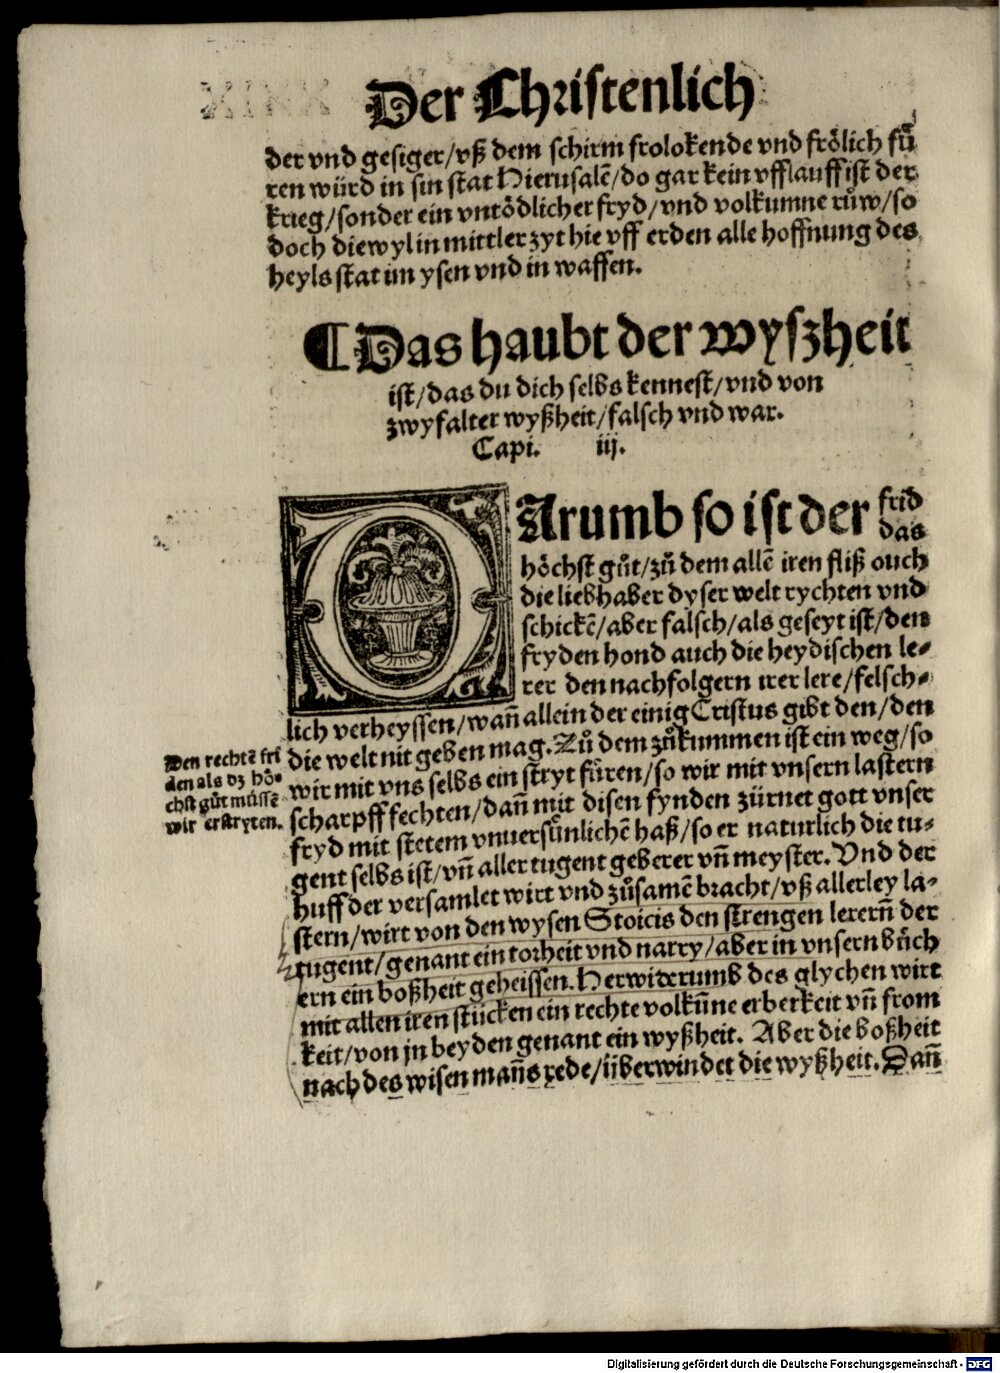 Der Christenlich
der vnd gesiger/vß dem schirm frolokende vnd froͤlich fuͤ
ren würd in sin stat Hierusalē/do gar kein vfflauff ist der
krieg/sonder ein vntoͤdlicher fryd/vnd volkumne ruͦw/so
doch diewyl in mittler zyt hie vff erden alle hoffnung des
heyls stat im ysen vnd in waffen.
¶Das haubt der wyszheit
ist/das du dich selbs kennest/vnd von
zwyfalter wyßheit/falsch vnd war.
Capi. iij.
DArumb so ist der frid
das
hoͤchst guͦt/zuͦ dem allē iren fliß ouch
die liebhaber dyser welt rychten vnd
schickē/aber falsch/als geseyt ist/den
fryden hond auch die heydischen le-
rer den nachfolgern irer lere/felsch-
lich verheyssen/wañ allein der einig Cristus gibt den/den
die welt nit geben mag. Zuͦ dem zuͦkummen ist ein weg/so
wir mit vns selbs ein stryt fuͤren/so wir mit vnsern lastern
scharpff fechten/dañ mit disen fynden zürnet gott vnser
fryd mit stetem vnuersuͤnlichē haß/so er naturlich die tu-
gent selbs ist/vñ aller tugent geberer vñ meyster. Vnd der
huff der versamlet wirt vnd zuͦsamē bracht/vß allerley la-
stern/wirt von den wysen Stoicis den strengen lerern̄ der
tugent/genant ein torheit vnd narry/aber in vnsern buͤch
ern ein boßheit geheissen. Herwiderumb des glychen wirt
mit allen iren stücken ein rechte volkūne erberkeit vñ from
keit/von jn beyden genant ein wyßheit. Aber die boßheit
nach des wisen mañs rede/überwindet die wyßheit. Dañ
Den rechtē fri
den als dz hoͤ-
chst guͦt müssē
wir erstryten.
Digitalisierung gefördert durch die Deutsche Forschungsgemeinschaft - DFG